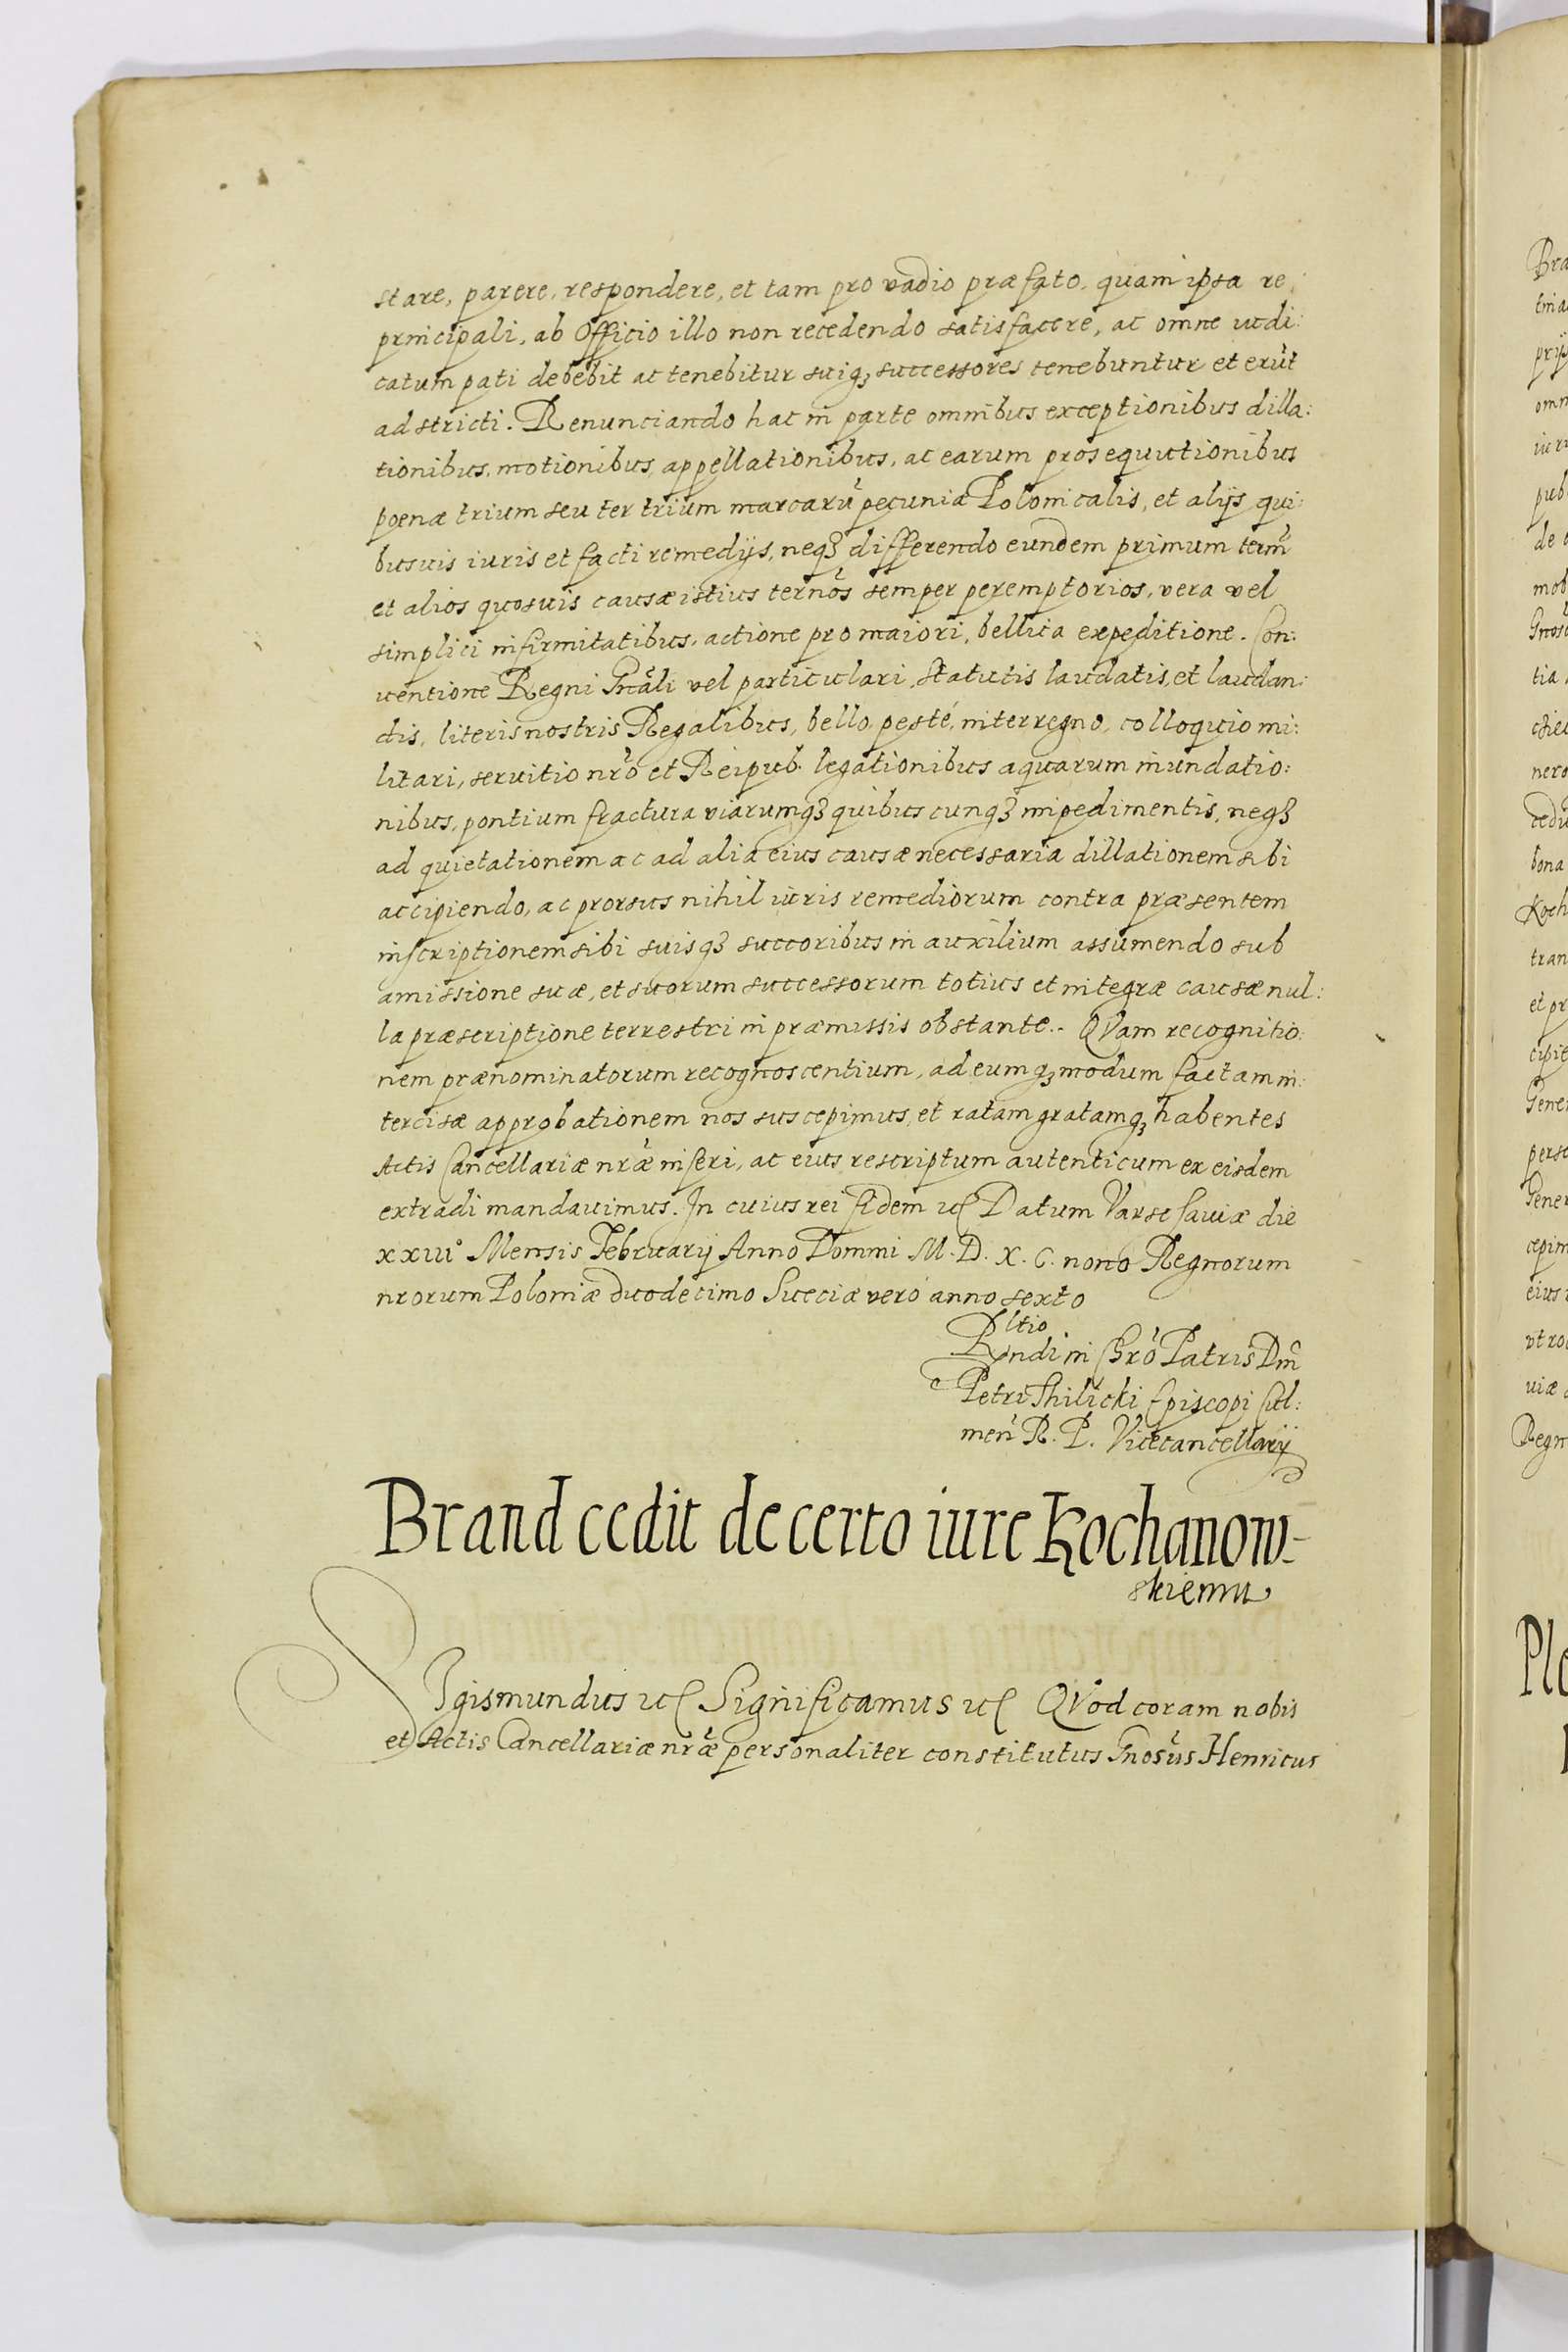 stare, parere, respondere, et tam pro vadio præfato, quam ipsa re
principali, ab Officio illo non recedendo satisfacere, ac omne iudi:
catum pati debebit ac tenebitur suiq₃ successores tenebuntur et erūt
adstricti. Renunciando hac in parte omnibus exceptionibus dilla:
tionibus, motionibus, appellationibus, ac earum prosequutionibus
poenæ trium seu ter trium marcarū pecuniæ Polonicalis, et alijs qui:
busuis iuris et facti remedijs, neq₃ differendo eundem primum term̄
et alios quosuis causæ istius terno᷆s semper peremptorios, vera vel
simplici infirmitatibus, actione pro maiori, bellica expeditione. Con:
uentione Regni Gnāli vel particulari, Statutis laudatis, et laudan:
dis, literis nostris Regalibus, bello, peste, interregno, colloquio mi:
litari, seruitio nr̄o et Reipub. legationibus aquarum inundatio:
nibus, pontium fractura viarumq₃ quibuscunq₃ impedimentis, neq₃
ad quietationem ac ad alia eius causæ necessaria dillationem sibi
accipiendo, ac prorsus nihil iuris remediorum contra præsentem
inscriptionem sibi suisq₃ succoribus in auxilium assumendo sub
amissione suæ, et suorum successorum totius et integræ causæ nul:
la præscriptione terrestri in præmissis obstante.- QVam recognitio:
nem prænominatorum recognoscentium, ad eumq₃ modum factam in:
tercisæ approbationem nos suscepimus, et ratam gratamq₃ habentes
Actis Cancellariæ nr̄æ inseri, ac eius rescriptum autenticum ex eisdem
extradi mandauimus. In cuius rei fidem etc Datum Varssauiæ die
xxiii° Mensis Februarij Anno Domini M. D. X. C. nono Regnorum
nrorum Poloniæ duodecimo Sueciæ vero anno sexto
Rltio
Rndi in Chr̄o Patris Dm̄
Petri Thilicki Episcopi Cul:
men̄ R. P. Vicecancellarij
Brand cedit de certo iure Kochanow-
skiemu
SIgismundus etc Significamus etc QVod coram nobis
et Actis Cancellariæ nr̄æ personaliter constitutus Gnosūs Henricus